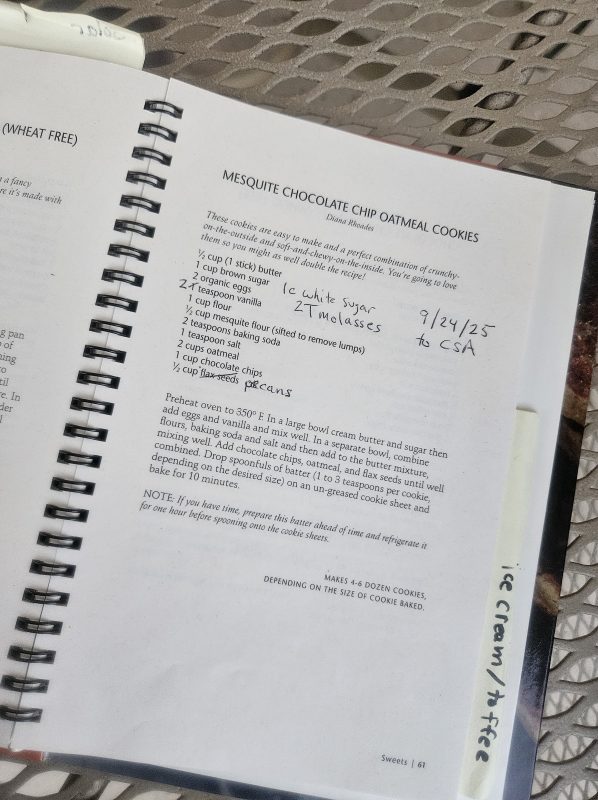 solar
(WHEAT FREE)
a fancy
re it's made with
ng pan
of
ning
to
til
re. In
der
MESQUITE CHOCOLATE CHIP OATMEAL COOKIES
Diana Rhoades
These cookies are easy to make and a perfect combination of crunchy-
on-the-outside and soft-and-chewy-on-the-inside. You're going to love
them so you might as well double the recipe!
½ cup (1 stick) butter
1 cup brown sugar 1c white sugar
2 organic eggs 2T molasses
2T teaspoon vanilla
1 cup flour
½ cup mesquite flour (sifted to remove lumps)
2 teaspoons baking soda
1 teaspoon salt
2 cups oatmeal
1 cup chocolate chips
½ cup flax seeds pecans
9/24/25
to CSA
Preheat oven to 350° F. In a large bowl cream butter and sugar then
add eggs and vanilla and mix well. In a separate bowl, combine
flours, baking soda and salt and then add to the butter mixture,
mixing well. Add chocolate chips, oatmeal, and flax seeds until well
combined. Drop spoonfuls of batter (1 to 3 teaspoons per cookie,
depending on the desired size) on an un-greased cookie sheet and
bake for 10 minutes.
NOTE: If you have time, prepare this batter ahead of time and refrigerate it
for one hour before spooning onto the cookie sheets.
MAKES 4-6 DOZEN COOKIES,
DEPENDING ON THE SIZE OF COOKIE BAKED.
ice cream/toffee
Sweets | 61